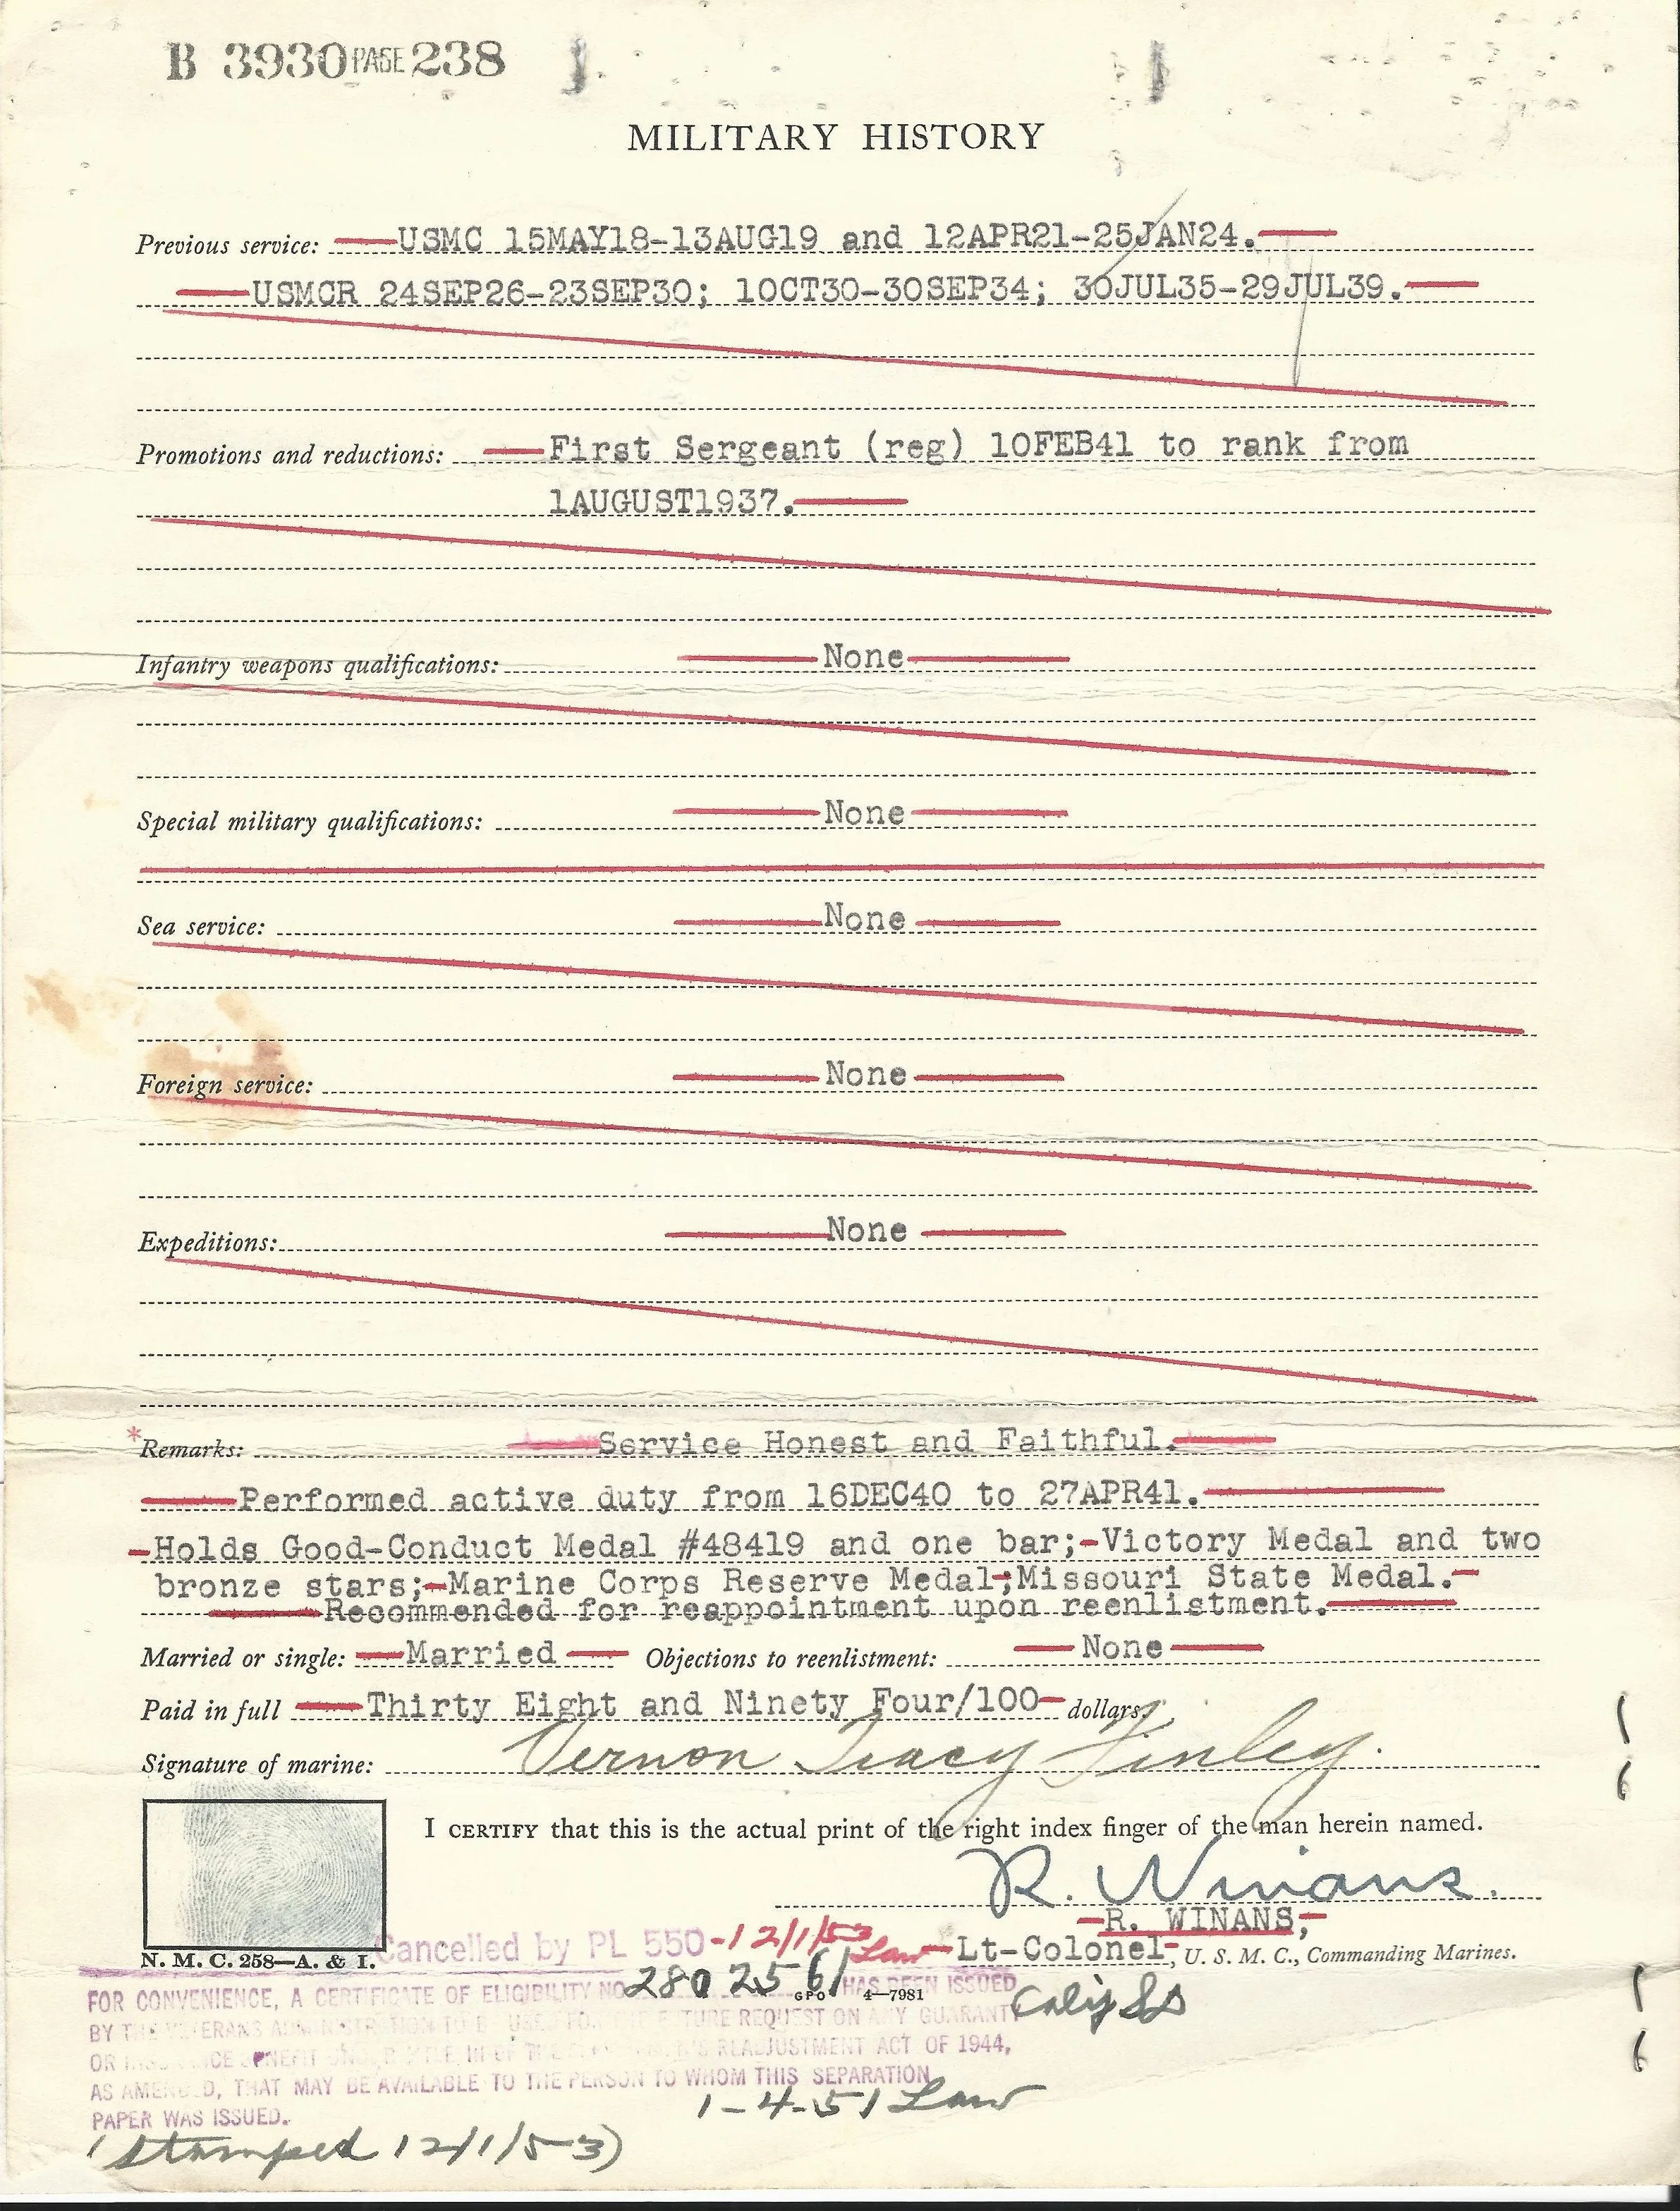 B 3930 PAGE 238
MILITARY HISTORY
Previous service: USMC 15MAY18-13AUG19 and 12APR21-25JAN24.
USMCR 24SEP26-23SEP30; 1OCT30-30SEP34; 30JUL35-29JUL39.
Promotions and reductions: First Sergeant (reg) 10FEB41 to rank from
1AUGUST1937.
Infantry weapons qualifications: None
Special military qualifications: None
Sea service: None
Foreign service: None
Expeditions: None
*Remarks: Service Honest and Faithful.
Performed active duty from 16DEC40 to 27APR41.
Holds Good-Conduct Medal #48419 and one bar;-Victory Medal and two
bronze stars;-Marine Corps Reserve Medal-;Missouri State Medal.-
Recommended for reappointment upon reenlistment.
Married or single: Married Objections to reenlistment: None
Paid in full Thirty Eight and Ninety Four/100 dollars.
Signature of marine: Vernon Tracy Finley.
I CERTIFY that this is the actual print of the right index finger of the man herein named.
R. Winans.
R. WINANS,
Lt-Colonel, U. S. M. C., Commanding Marines.
N. M. C. 258—A. & I.
Cancelled by PL 550 - 12/1/53 Law
FOR CONVENIENCE, A CERTIFICATE OF ELIGIBILITY NO. 2802561 HAS BEEN ISSUED
GPO 4—7981
Calif
BY THE VETERANS ADMINISTRATION TO BE USED FOR THE FUTURE REQUEST ON ANY GUARANTY
OR INSURANCE BENEFIT UNDER TITLE III OF THE SERVICEMEN'S READJUSTMENT ACT OF 1944,
AS AMENDED, THAT MAY BE AVAILABLE TO THE PERSON TO WHOM THIS SEPARATION
PAPER WAS ISSUED.
1-4-51 Law
(Stamped 12/1/53)